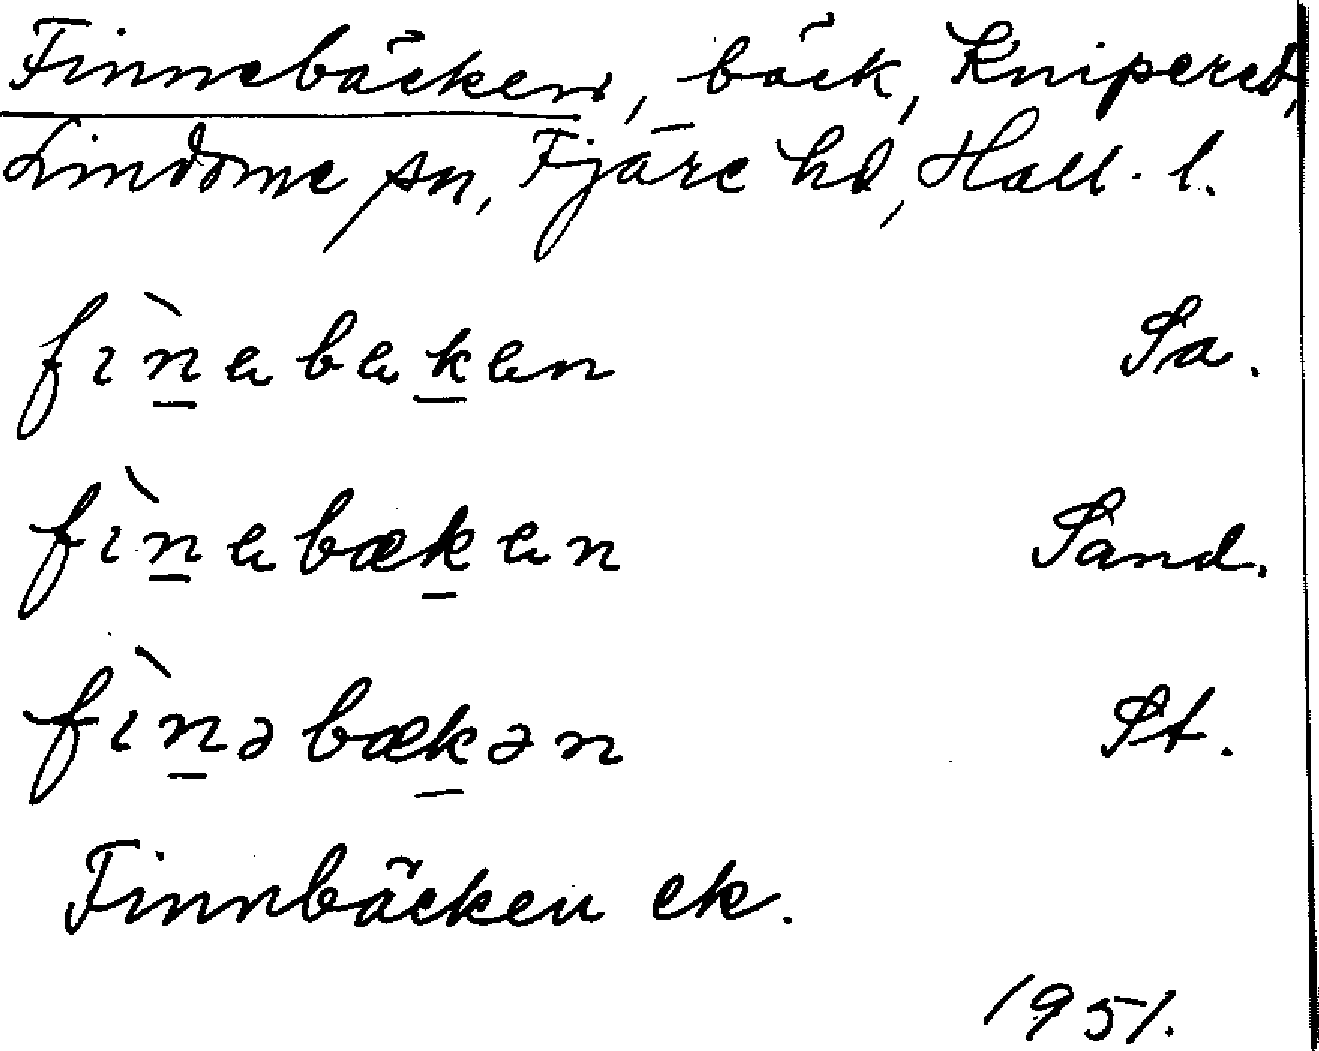 Finnebäcken, bäck, Knipered,
Lindome sn, Fjäre hd, Hall. l.
fìn̲ebek̲en Sa.
fìn̲ebæk̲en Sand.
fìn̲əbæk̲ən St.
Finnbäcken ek.
1951.